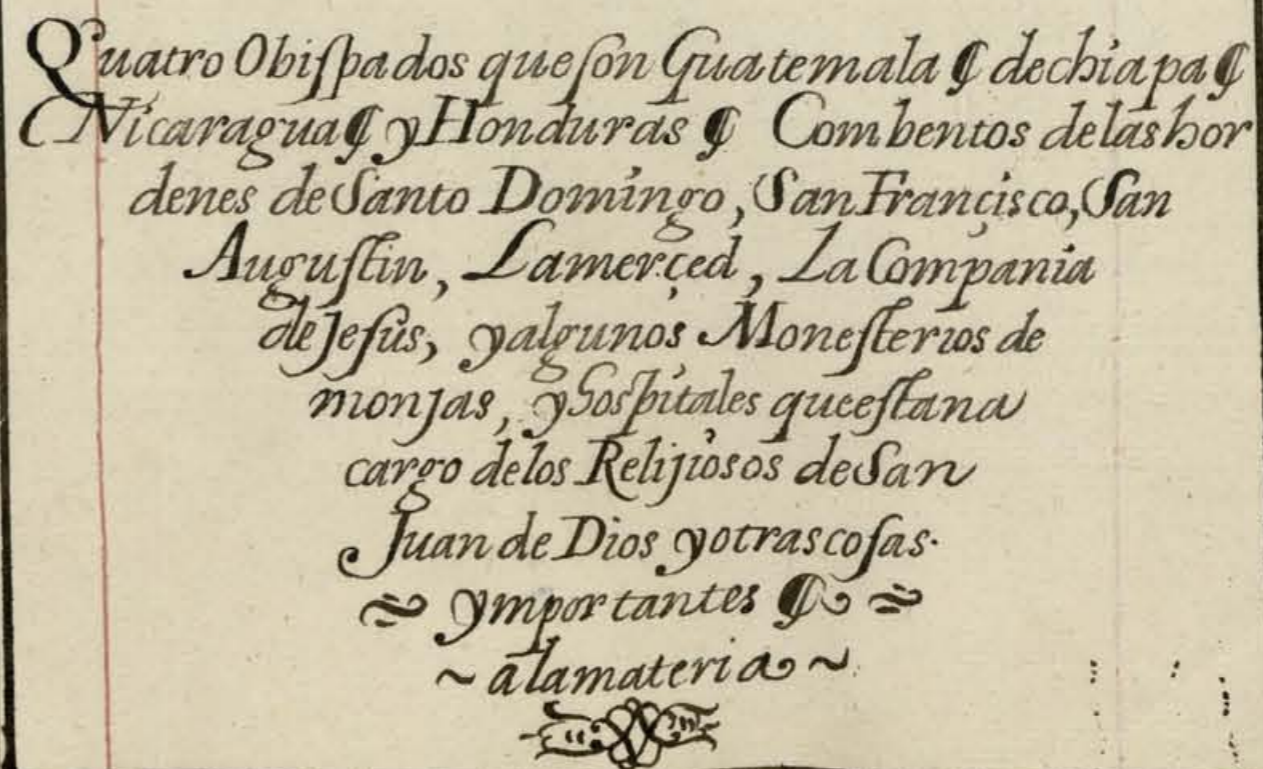 Quatro Obiſpados que ſon Guatemala ¶ de chiapa ¶
Nicaragua ¶ y Honduras ¶ Combentos de las hor
denes de Santo Domingo, San Françisco, San
Auguſtin, La merçed, La Compania
de Jeſus, y algunos Moneſterios de
monjas, y hospitales que eſtan a
cargo de los Relijiosos de San
Juan de Dios y otras coſas.
ymportantes ¶
a la materia